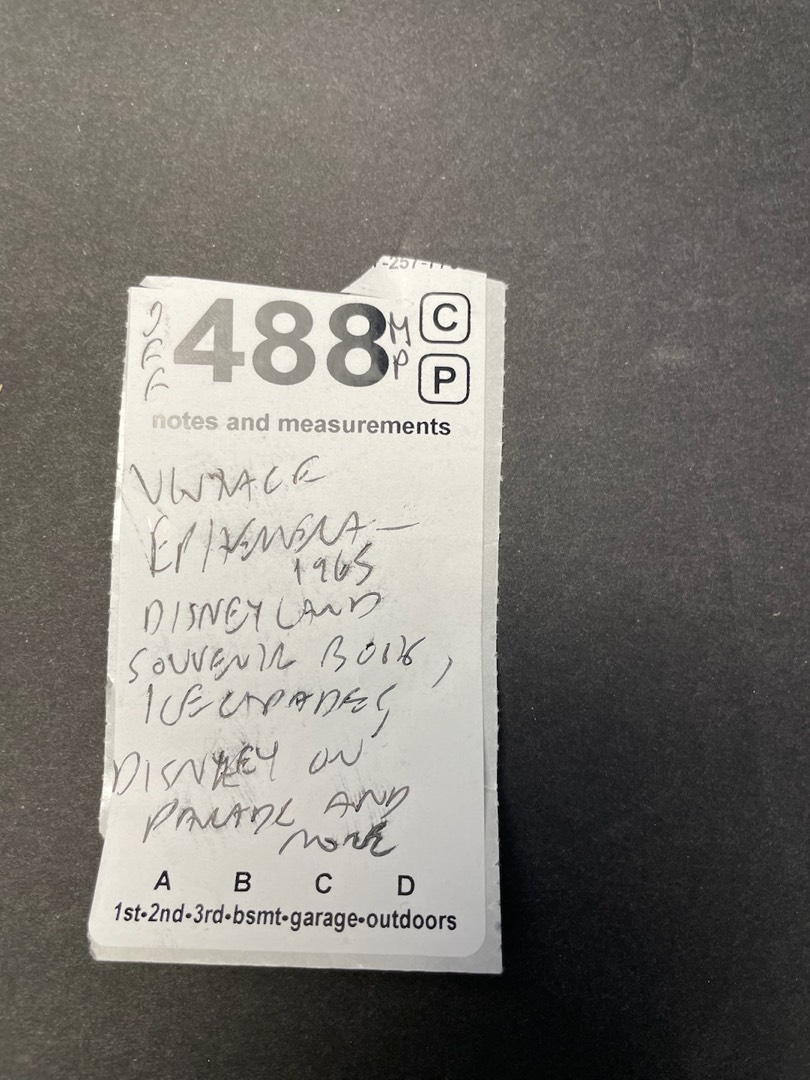 -257-
488 C
P
J
F
F
M
P
notes and measurements
VINTAGE
EPHEMERA—
1965
DISNEYLAND
SOUVENIR BOOK,
ICE CAPADES,
DISNEY ON
PARADE AND
MORE
A B C D
1st•2nd•3rd•bsmt•garage•outdoors